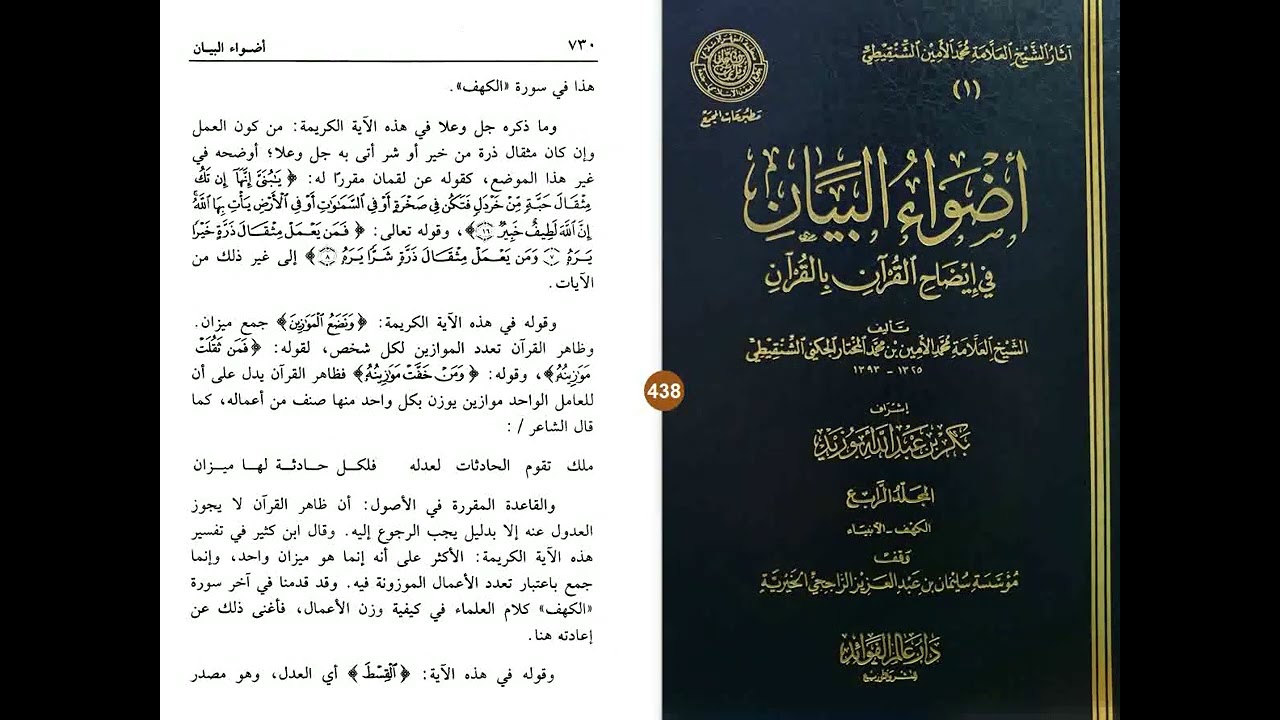 ٧٣٠ أضواء البيان
هذا في سورة «الكهف».
وما ذكره جل وعلا في هذه الآية الكريمة: من كون العمل
وإن كان مثقال ذرة من خير أو شر أتى به جل وعلا؛ أوضحه في
غير هذا الموضع، كقوله عن لقمان مقررًا له: ﴿ يَٰبُنَيَّ إِنَّهَآ إِن تَكُ
مِثْقَالَ حَبَّةٍ مِّنْ خَرْدَلٍ فَتَكُن فِي صَخْرَةٍ أَوْ فِي السَّمَٰوَٰتِ أَوْ فِي الْأَرْضِ يَأْتِ بِهَا اللَّهُ
إِنَّ اللَّهَ لَطِيفٌ خَبِيرٌ ١٦﴾، وقوله تعالى: ﴿ فَمَن يَعْمَلْ مِثْقَالَ ذَرَّةٍ خَيْرًا
يَرَهُ ٧ وَمَن يَعْمَلْ مِثْقَالَ ذَرَّةٍ شَرًّا يَرَهُ ٨﴾ إلى غير ذلك من
الآيات.
وقوله في هذه الآية الكريمة: ﴿وَنَضَعُ الْمَوَٰزِينَ﴾ جمع ميزان.
وظاهر القرآن تعدد الموازين لكل شخص، لقوله: ﴿فَمَن ثَقُلَتْ
مَوَٰزِينُهُ﴾، وقوله: ﴿ وَمَنْ خَفَّتْ مَوَٰزِينُهُ﴾ فظاهر القرآن يدل على أن
للعامل الواحد موازين يوزن بكل واحد منها صنف من أعماله، كما
قال الشاعر / :
ملك تقوم الحادثات لعدله فلكل حادثة لها ميزان
والقاعدة المقررة في الأصول: أن ظاهر القرآن لا يجوز
العدول عنه إلا بدليل يجب الرجوع إليه. وقال ابن كثير في تفسير
هذه الآية الكريمة: الأكثر على أنه إنما هو ميزان واحد، وإنما
جمع باعتبار تعدد الأعمال الموزونة فيه. وقد قدمنا في آخر سورة
«الكهف» كلام العلماء في كيفية وزن الأعمال، فأغنى ذلك عن
إعادته هنا.
وقوله في هذه الآية: ﴿الْقِسْطَ﴾ أي العدل، وهو مصدر
438
آثار الشيخ العلامة محمد الأمين الشنقيطي
(١)
مطبوعات المجمع
أضْوَاءُ البَيَانِ
في إيضاح القرآن بالقرآن
تأليف
الشيخ العلامة محمد الأمين بن محمد المختار الجكني الشنقيطي
١٣٢٥ - ١٣٩٣
إشراف
بكر بن عبد الله أبو زيد
المجلد الرابع
الكهف - الأنبياء
وقف
مؤسسة سليمان بن عبد العزيز الراجحي الخيرية
دار عالم الفوائد
للنشر والتوزيع